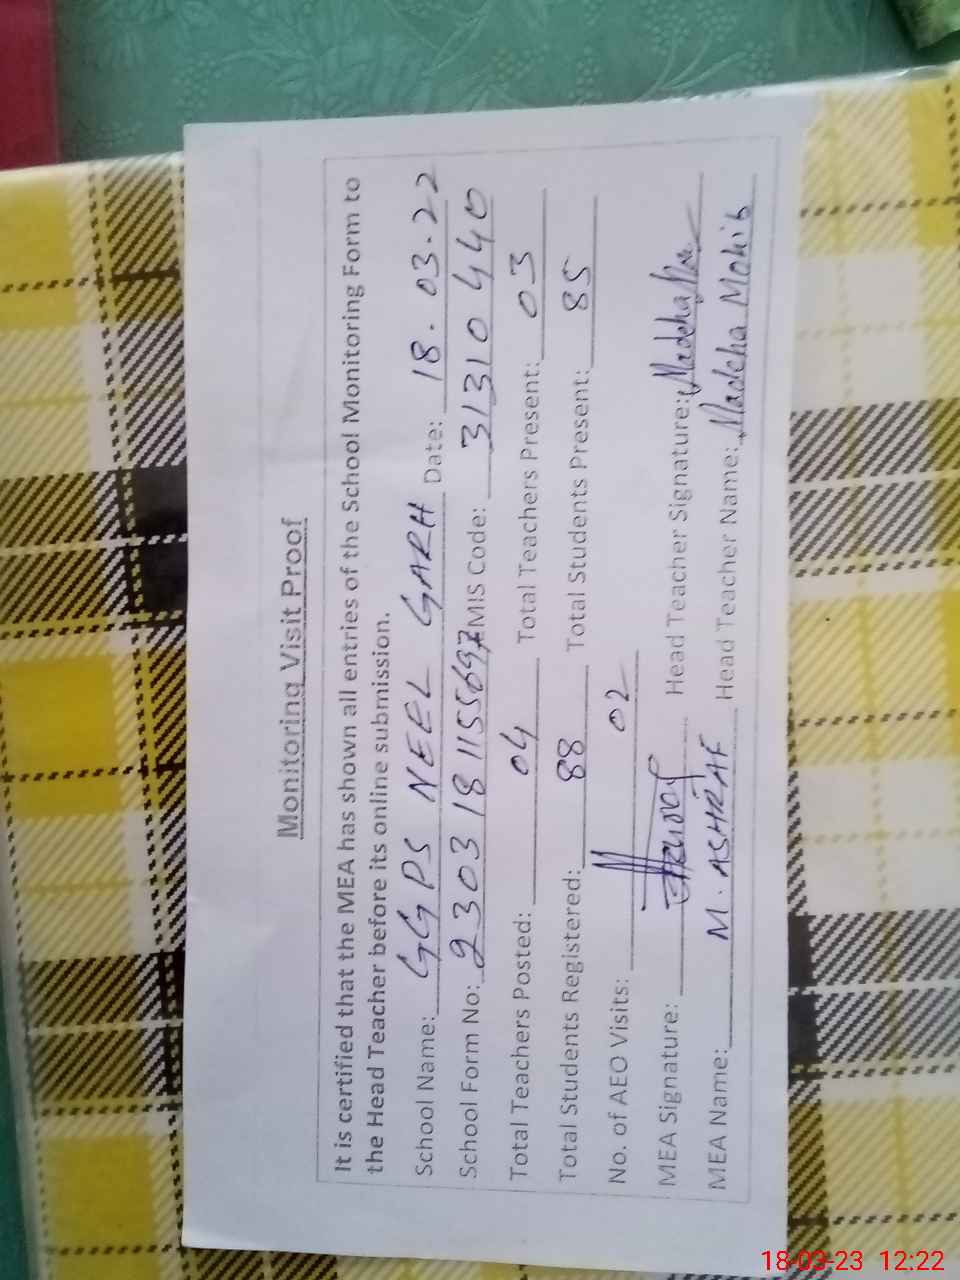 Monitoring Visit Proof
It is certified that the MEA has shown all entries of the School Monitoring Form to
the Head Teacher before its online submission.
School Name: GGPS NEEL GARH Date: 18.03.22
School Form No: 2303181155697 EMIS Code: 31310440
Total Teachers Posted: 04 Total Teachers Present: 03
Total Students Registered: 88 Total Students Present: 85
No. of AEO Visits: 02
MEA Signature: Head Teacher Signature: Madeha
MEA Name: M. ASHRAF Head Teacher Name: Madeha Mohib
18-03-23 12:22